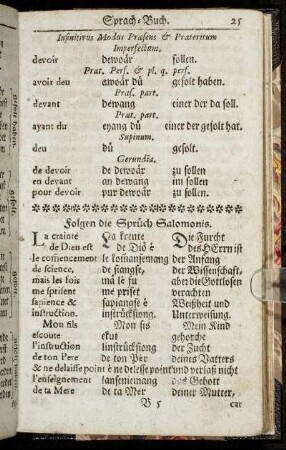 Sprach-Buch. 25
Infinitivus Modus Præsens & Præteritum
Imperfectum.
devoir dewoår sollen.
Præt. Perf. & pl. q. perf.
avoir deu awoår dû gesolt haben.
Præs. part.
devant dewang einer der da soll.
Præt. part.
ayant du eyang dû einer der gesolt hat.
Supinum.
deu dû gesolt.
Gerundia.
de devoir de dewoår zu sollen
en devant an dewang im sollen
pour devoir pur dewoår zu sollen.
Folgen die Sprüch Salomonis.
La crainte La krente Die Furcht
de Dieu est de Diö è des HErrn ist
le comencement le komansemang der Anfang
de science, de siangse, der Wissenschaft,
mais les fols mä lè fu aber die Gottlosen
me sprisent me priset verachten
sapience & sapiangse è Weißheit und
instruction. instrücksiong. Unterweisung.
Mon fils Mon fis Mein Kind
escoute ekut gehorche
l'instruction linstrücksiong der Zucht
de ton Pere de ton Pèr deines Vatters
& ne delaisse point è ne delesse point und verlaß nicht
l'enseignement lanseniemang das Gebott
de ta Mere de ta Mèr deiner Mutter,
B 5 car